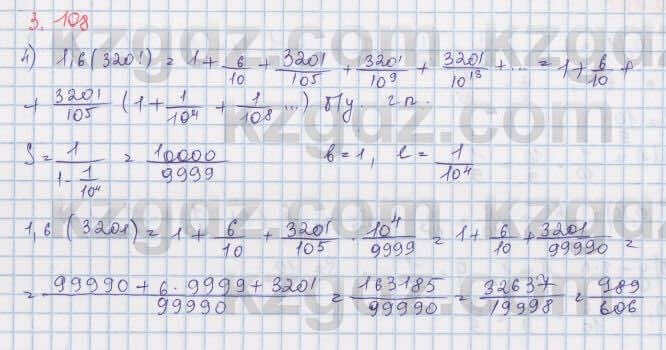 3. 108
4) 1,6(3201) = 1 + 6/10 + 3201/10^5 + 3201/10^9 + 3201/10^13 + ... = 1 + 6/10 +
+ 3201/10^5 (1 + 1/10^4 + 1/10^8 ...)
S = 1/(1 - 1/10^4) = 10000/9999 b = 1, = 1/10^4
1,6(3201) = 1 + 6/10 + 3201/10^5 · 10^4/9999 = 1 + 6/10 + 3201/99990 =
= (99990 + 6 · 9999 + 3201)/99990 = 163185/99990 = 32637/19998 = 989/606
kzgdz.com